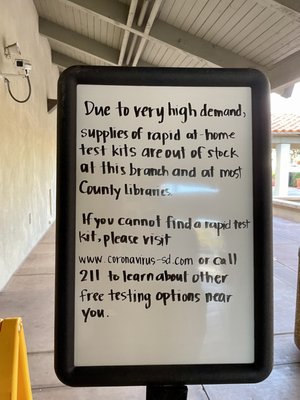 Due to very high demand,
supplies of rapid at-home
test kits are out of stock
at this branch and at most
County libraries.
If you cannot find a rapid test
kit, please visit
www.coronavirus-sd.com or call
211 to learn about other
free testing options near
you.